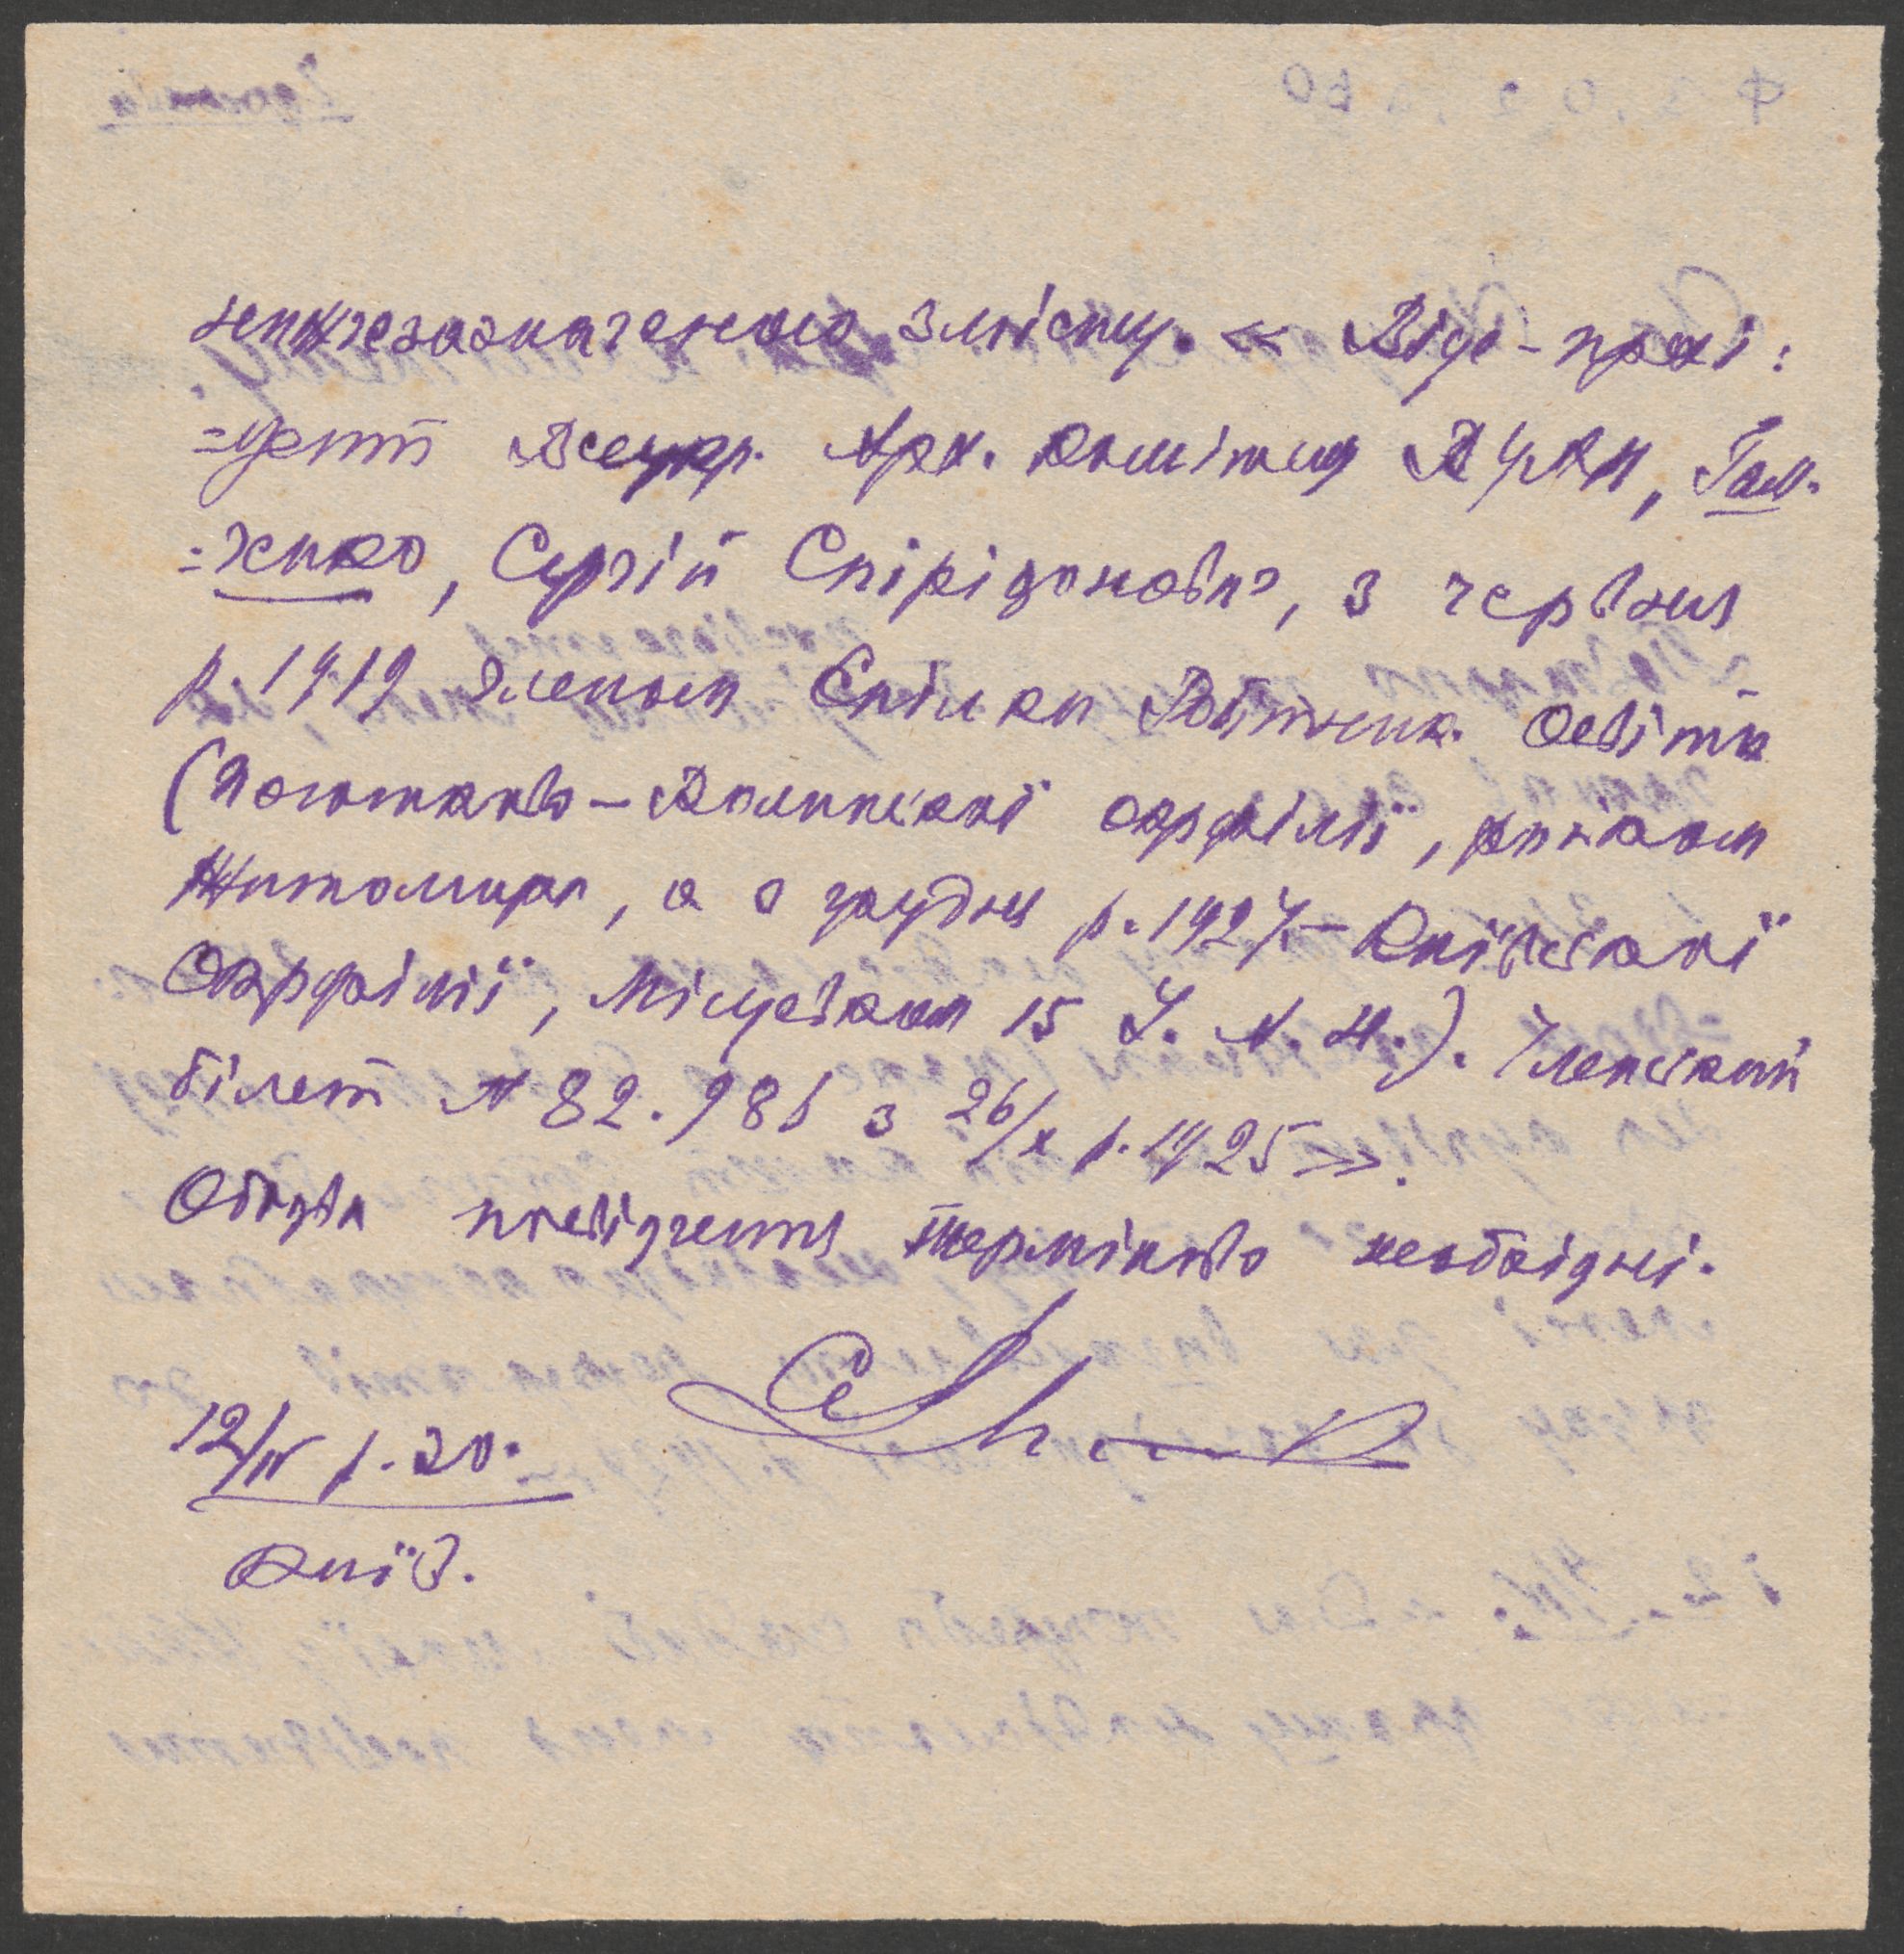 нижчезазначеного змісту. « Віце-презі:
=дент Всеукр. Арх. Комітету ВУАН, Гам-
=ченко, Сергій Спірідонович, з червня
р. 1919 членом Спілки Робітник. Освіти
(Початково-Волинської окрфілії, районом
Житомира, а з грудня р. 1927 – Київської
Окрфілії, Місцевком 15 У. А. Н.). Членський
білет № 82.986 з 26/X р. 1925 ».
Обидва посвідчення терміново необхідні.
12/IV р. 30.
Київ.